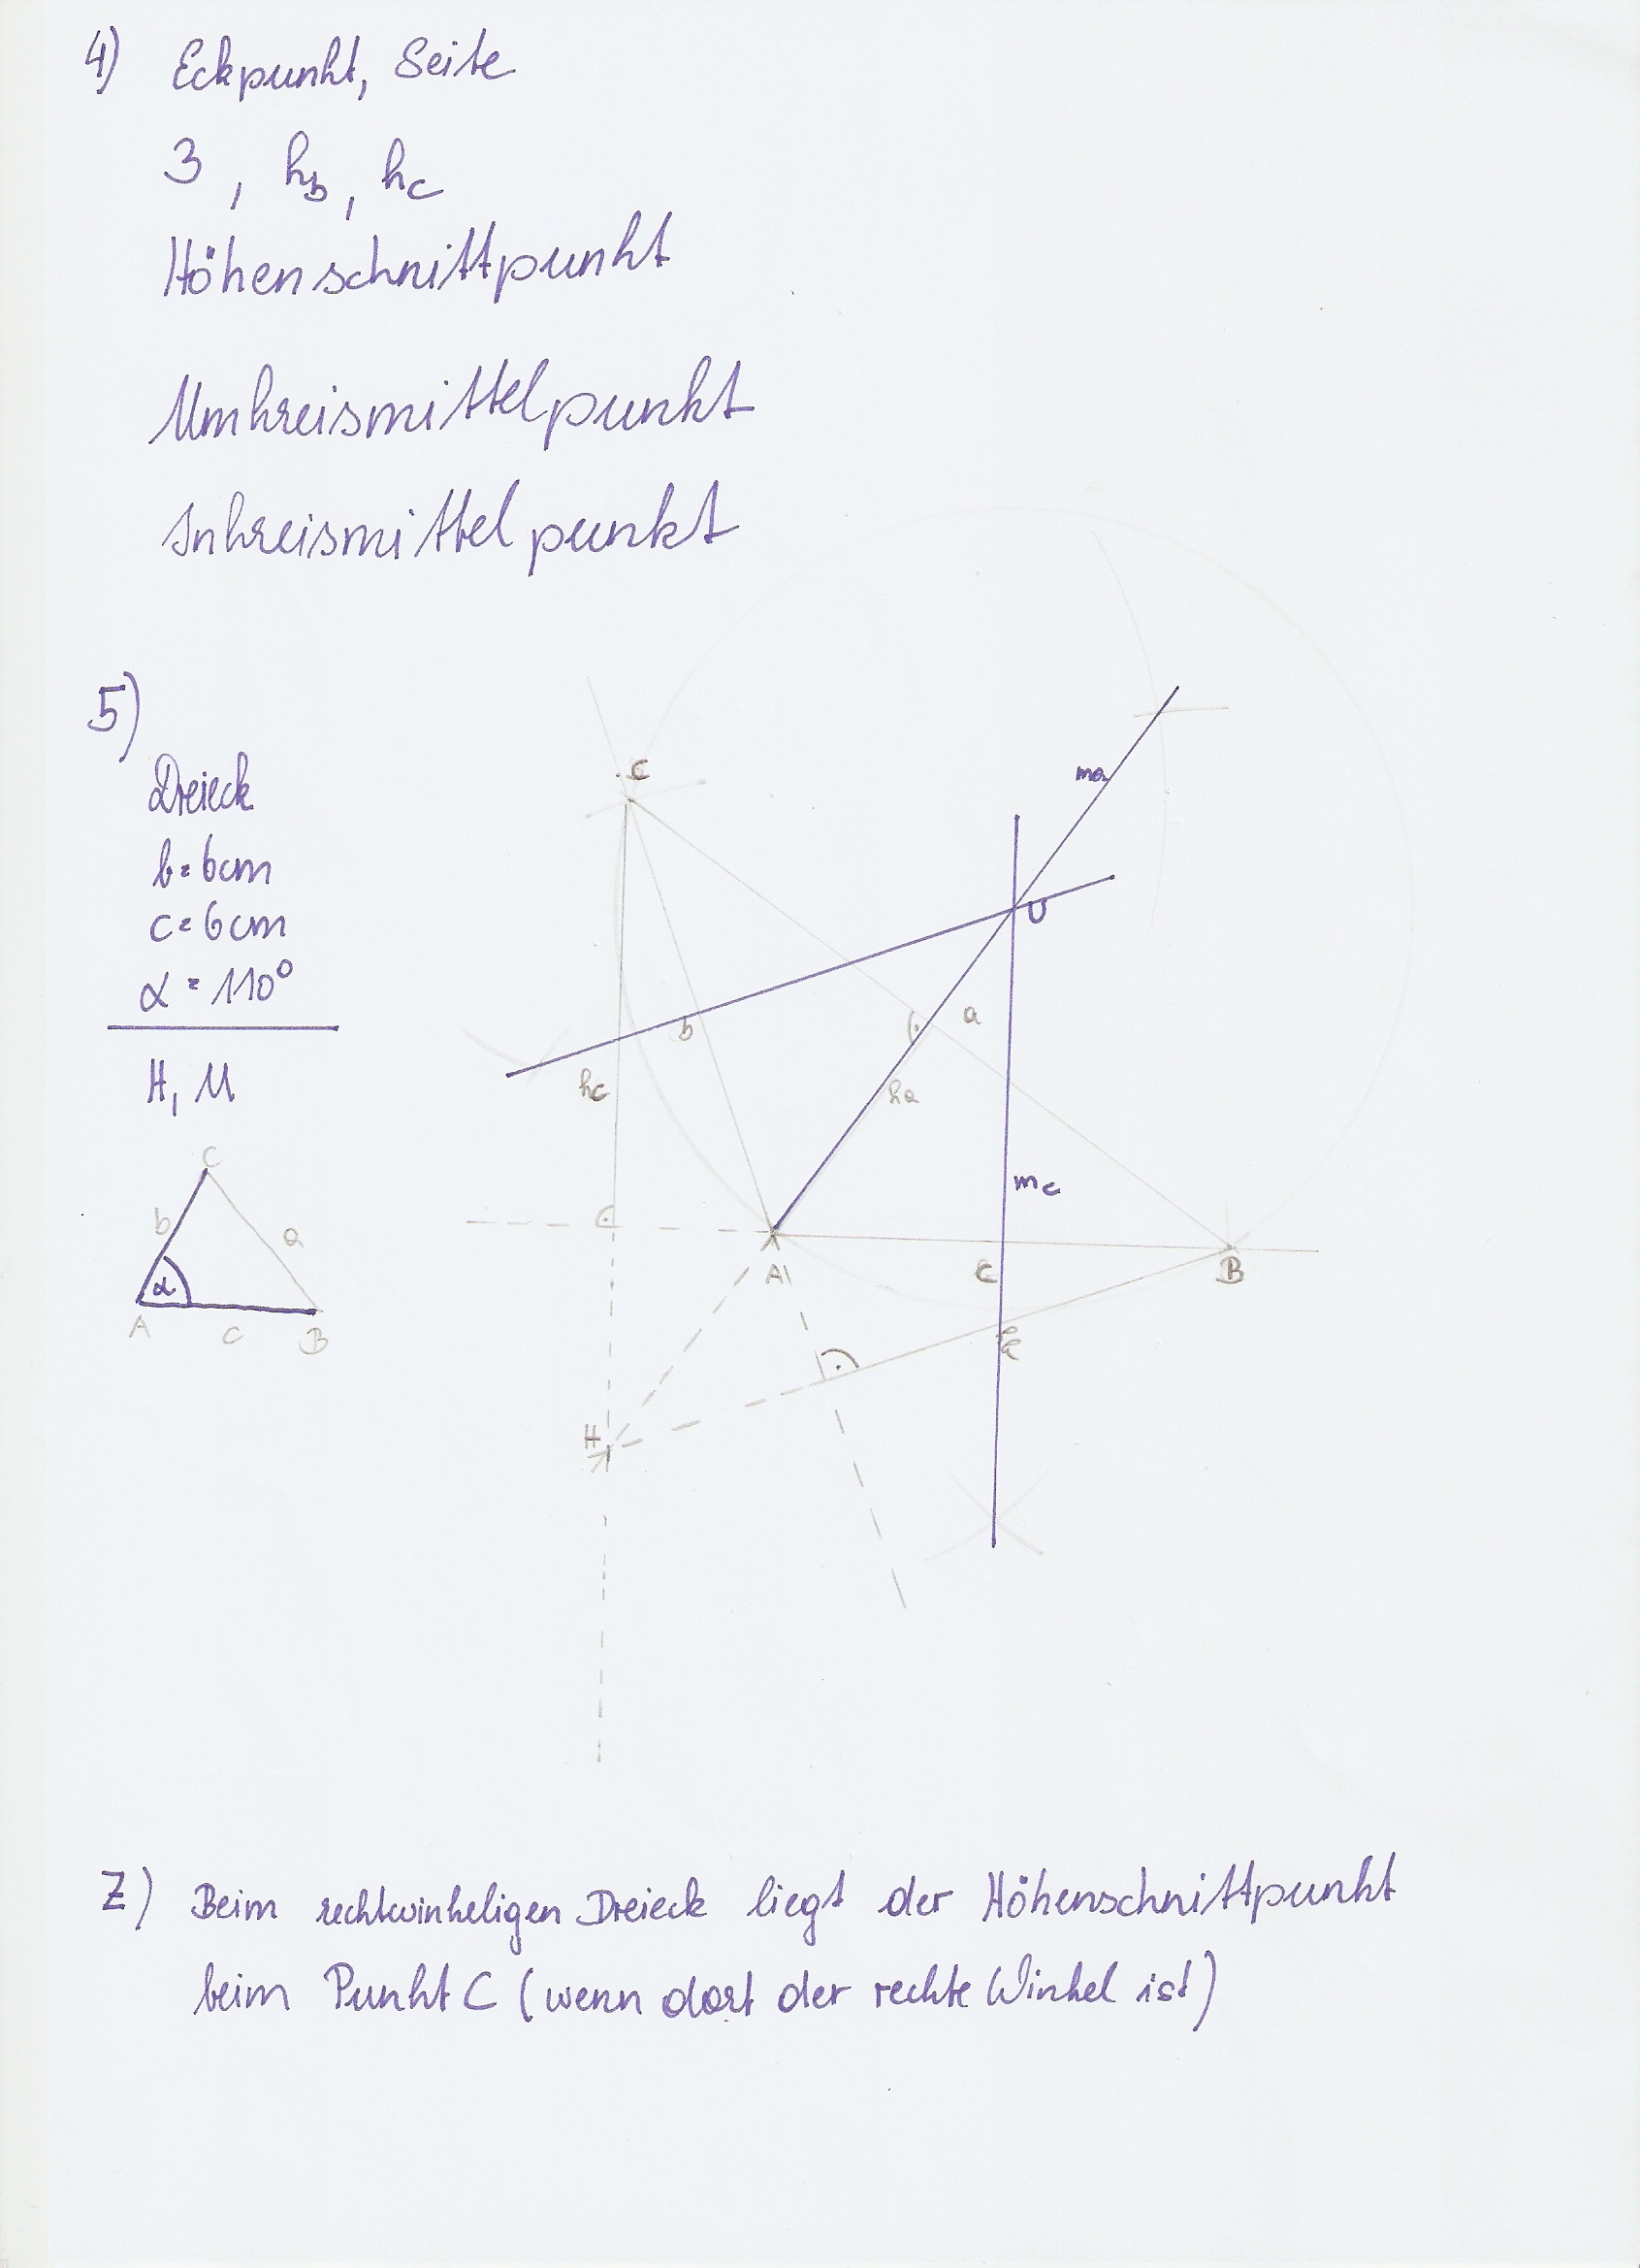 4) Eckpunkt, Seite
3, hb, hc
Höhenschnittpunkt
Umkreismittelpunkt
Inkreismittelpunkt
5)
Dreieck
b=6cm
c=6cm
α=110°
H, U
C
b
a
α
A
c
B
C
ma
U
b
a
hc
ha
mc
A
c
B
H
Z) Beim rechtwinkeligen Dreieck liegt der Höhenschnittpunkt
beim Punkt C (wenn dort der rechte Winkel ist)